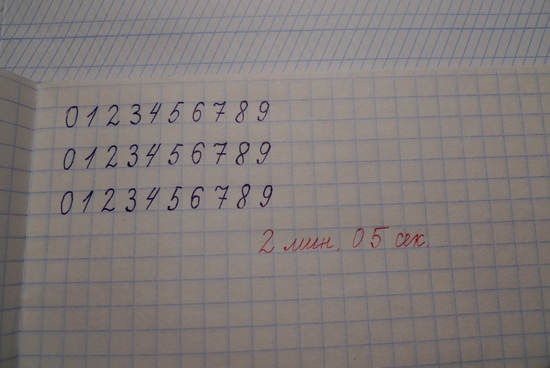 0 1 2 3 4 5 6 7 8 9
0 1 2 3 4 5 6 7 8 9
0 1 2 3 4 5 6 7 8 9
2 мин. 05 сек.